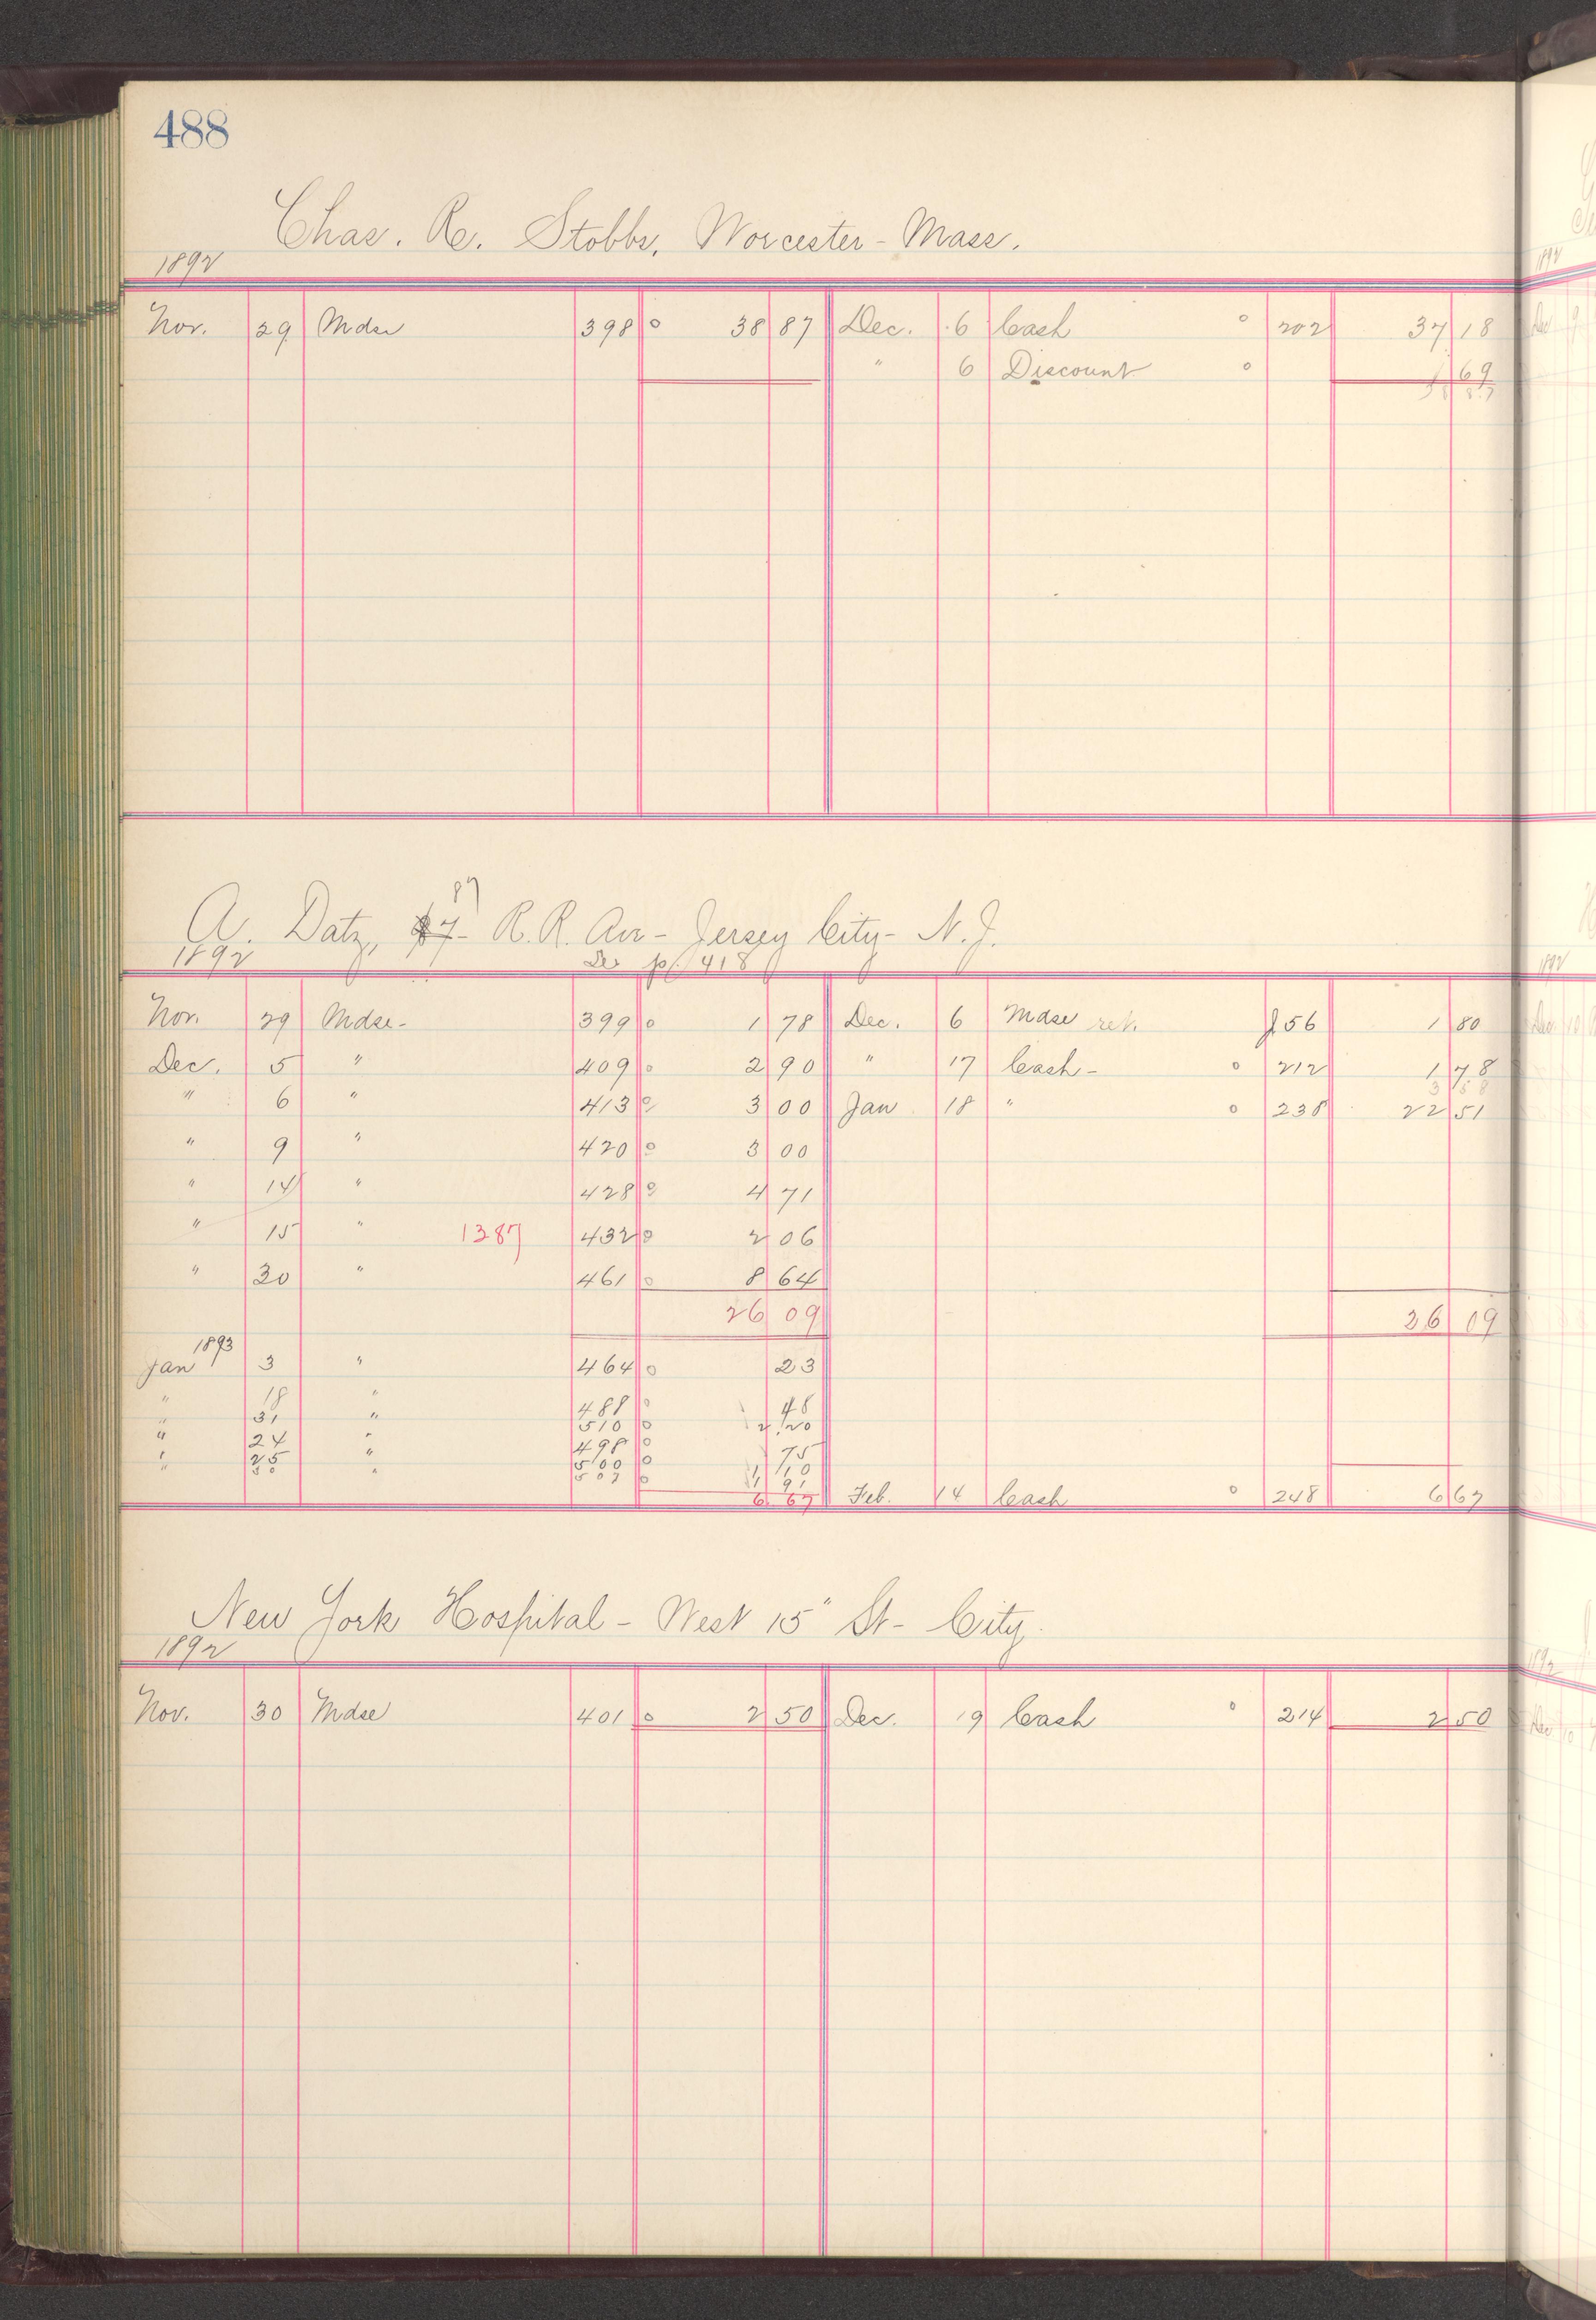 488
Chas. R. Stobbs, Worcester - Mass.
1892
Nov. 29 Mdse 398 0 38 87 Dec. 6 Cash 0 202 37 18
" 6 Discount 0 1 69
38 87
87
A. Datz, R. R. Ave - Jersey City - N. J.
1892 p. 418
Nov. 29 Mdse - 399 0 1 78 Dec. 6 Mdse ret. J 56 1 80
Dec. 5 " 409 0 2 90 " 17 Cash - 0 212 1 78
3 58
" 6 " 413 0 3 00 Jan 18 " 0 238 22 51
" 9 " 420 0 3 00
" 14 " 428 0 4 71
" 15 " 1387 432 0 2 06
" 30 " 461 0 8 64
26 09 26 09
1893
Jan 3 " 464 0 23
" 18 " 488 0 48
" 31 " 510 0 2 20
" 24 " 498 0 75
" 25 " 500 0 1 10
" " 507 0 1 91
6 67 Feb. 14 Cash 0 248 6 67
New York Hospital - West 15" St - City.
1892
Nov. 30 Mdse 401 0 2 50 Dec. 19 Cash 0 214 2 50